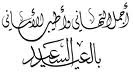 أجمل التهاني وأطيب الأماني
بالعيد السعيد